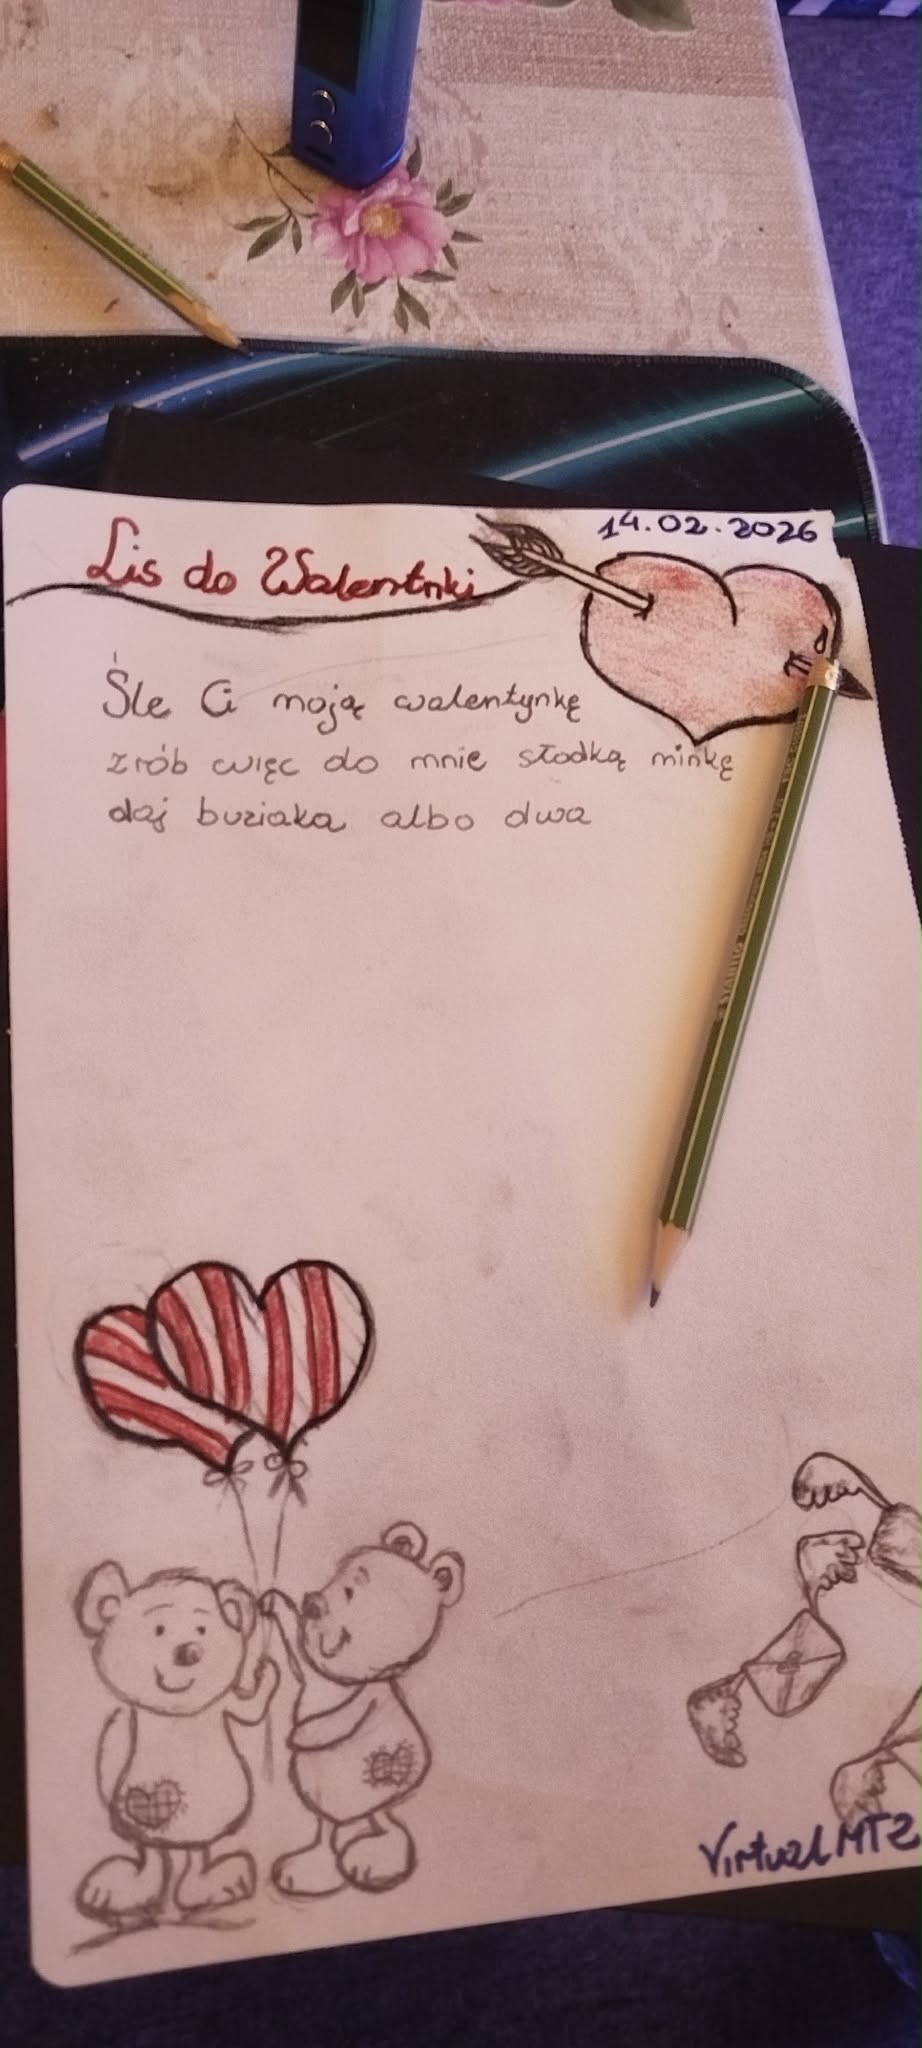 14.02.2026
Lis do Walentnki
Ślę Ci moją walentynkę
zrób więc do mnie słodką minkę
daj buziaka albo dwa
VirtualMTZ